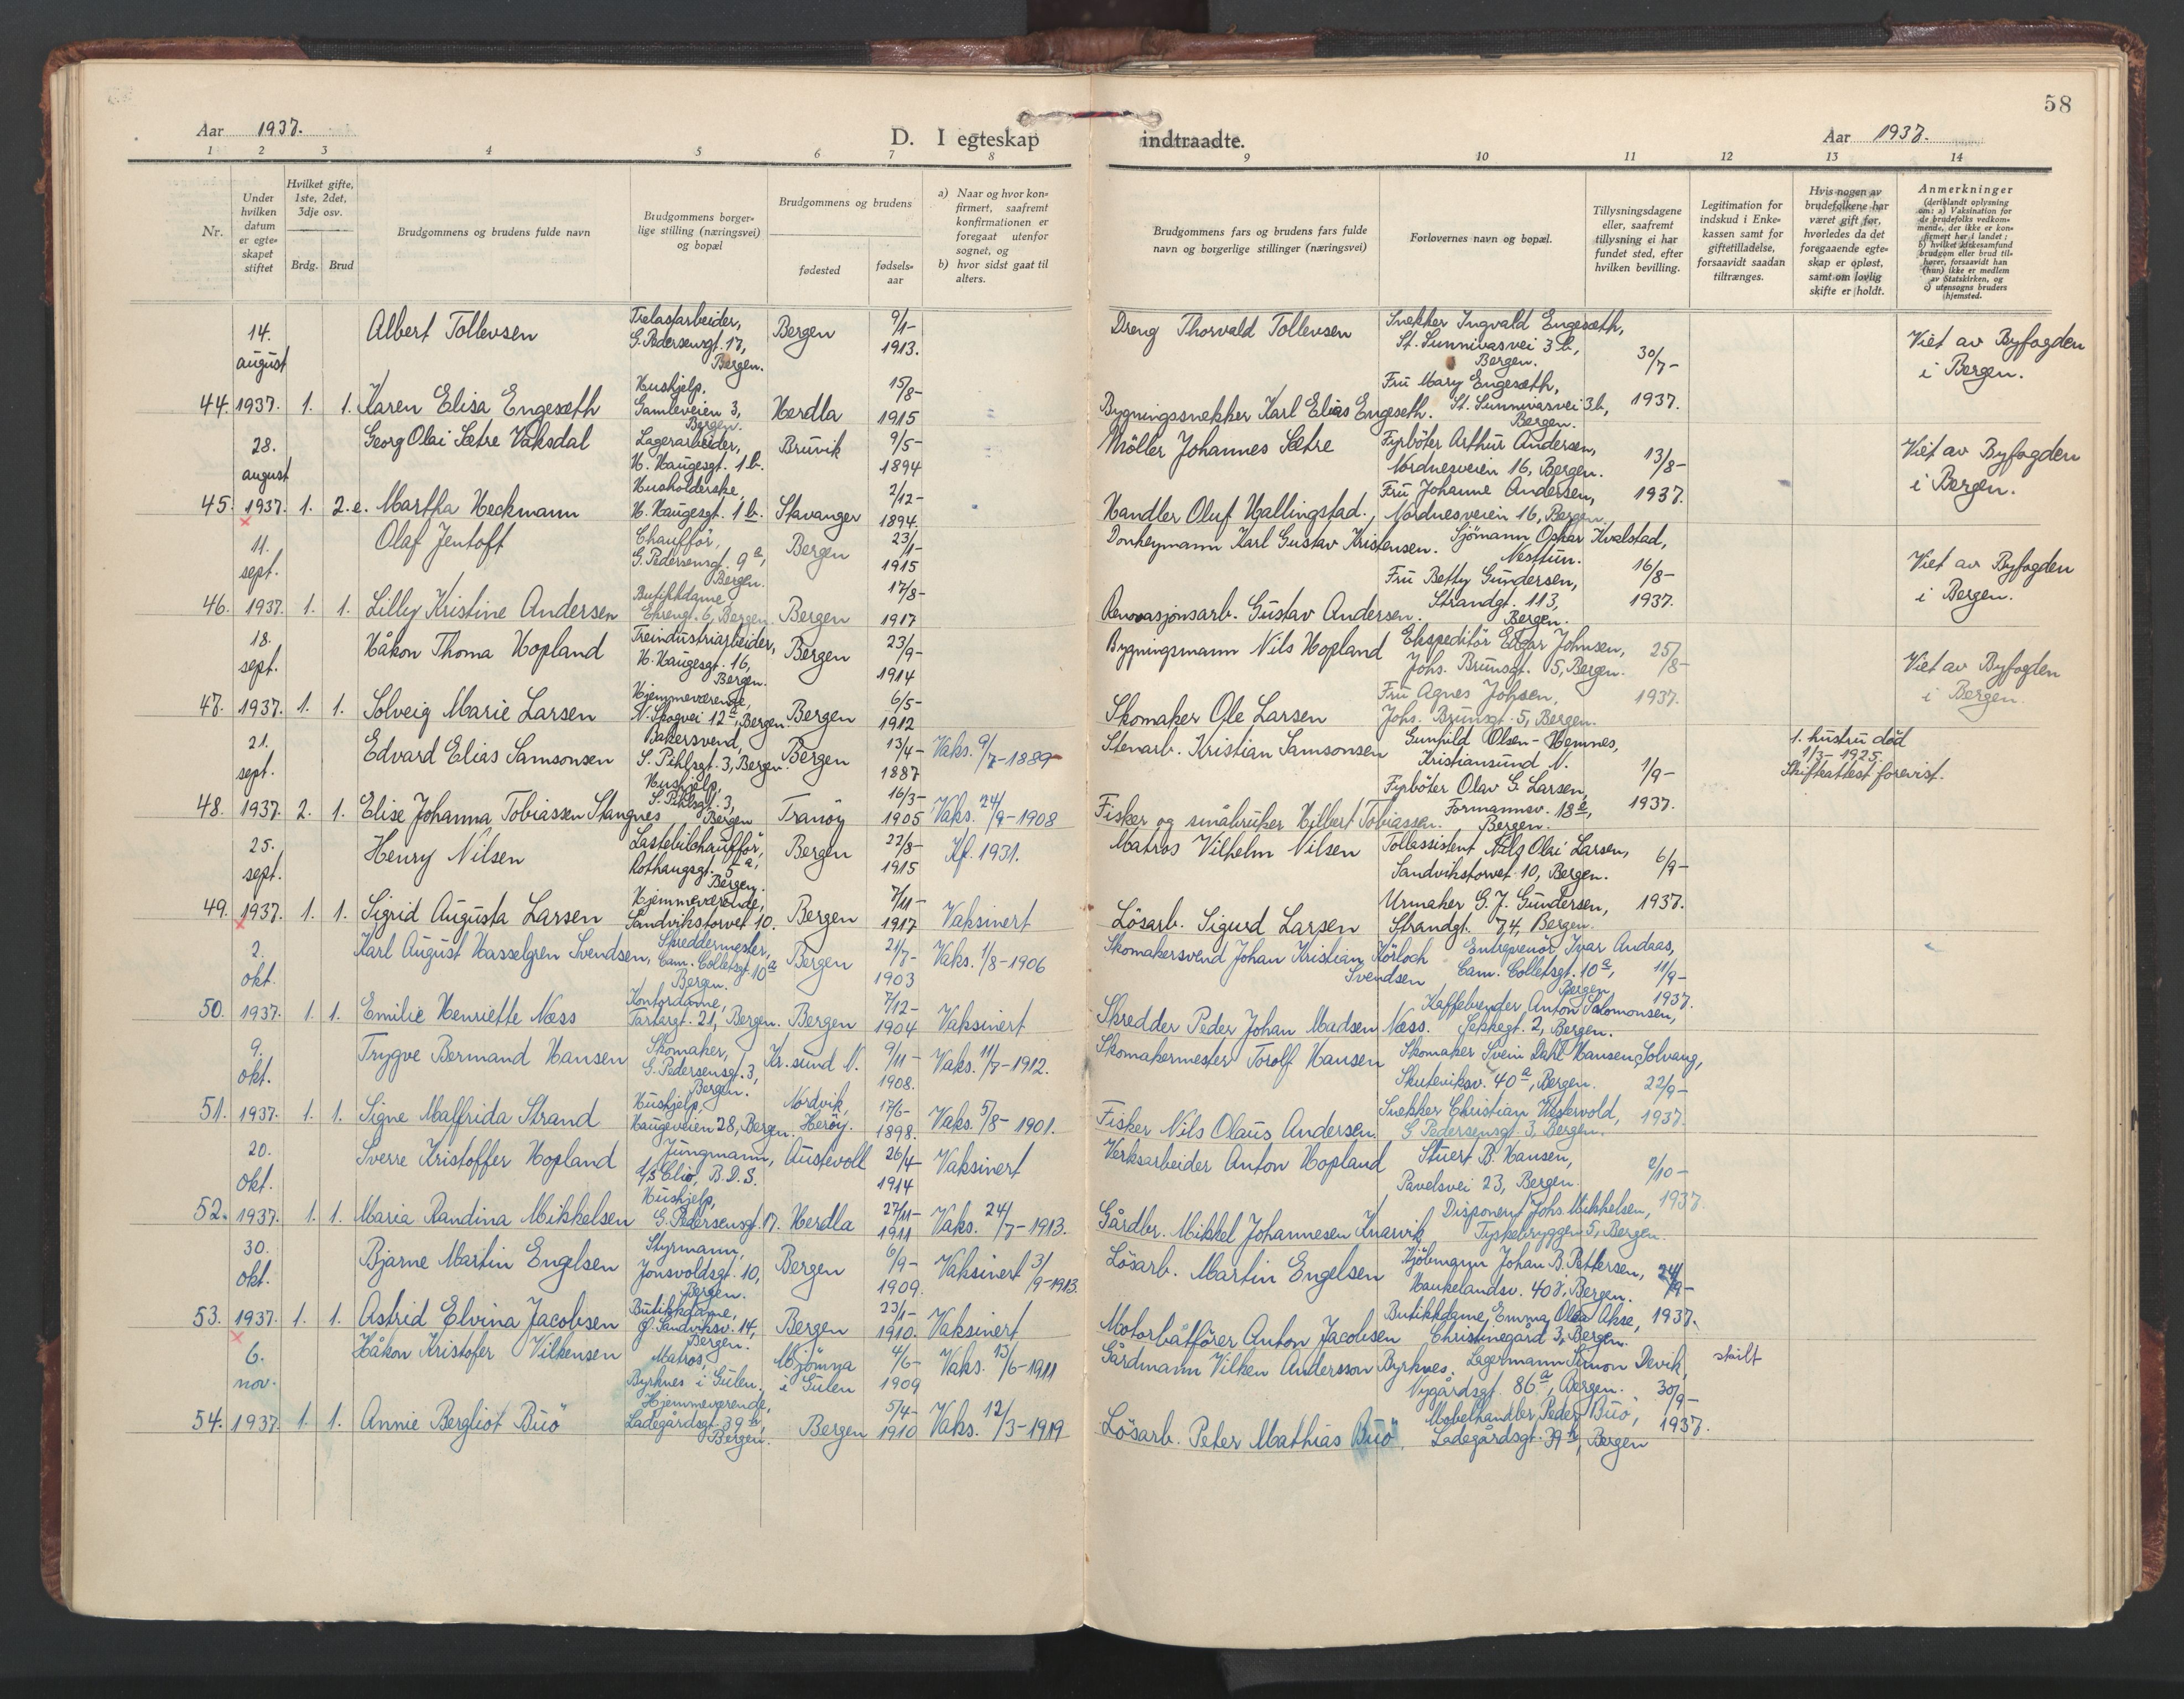 58
Aar 1937.
D. I egteskap indtraadte.
Aar 1937.
1 2 3 4 5 6 7 8 9 10 11 12 13 14
Nr.
Under hvilken datum er egteskapet stiftet
Hvilket gifte, 1ste, 2det, 3dje osv.
Brdg. Brud
Brudgommens og brudens fulde navn
Brudgommens borgerlige stilling (næringsvei) og bopæl
Brudgommens og brudens
fødested
fødselsaar
a) Naar og hvor konfirmert, saafremt konfirmationen er foregaat utenfor sognet, og
b) hvor sidst gaat til alters.
Brudgommens fars og brudens fars fulde navn og borgerlige stillinger (næringsvei)
Forlovernes navn og bopæl.
Tillysningsdagene eller, saafremt tillysning ei har fundet sted, efter hvilken bevilling.
Legitimation for indskud i Enkekassen samt for giftetilladelse, forsaavidt saadan tiltrænges.
Hvis nogen av brudefolkene har været gift før, hvorledes da det foregaaende egteskap er opløst, samt om lovlig skifte er holdt.
Anmerkninger (deriblandt oplysning om: a) Vaksination for de brudefolks vedkommende, der ikke er konfirmert her i landet; b) hvilket kirkesamfund brudgom eller brud tilhører, forsaavidt han (hun) ikke er medlem av Statskirken, og c) utensogns bruders hjemsted.
14. august Albert Tollevsen Trelastarbeider, G. Pedersensgt. 17, Bergen. Bergen 9/1-1913. Dreng Thorvald Tollevsen Snekker Ingvald Engeseth, St. Sunnivasvei 3b, Bergen. 30/7- Viet av Byfogden i Bergen.
44. 1937. 1. 1. Karen Elisa Engeseth Hushjelp, Gamleveien 3, Bergen. Herdla 15/8-1915 Bygningssnekker Karl Elias Engeseth. Fru Mary Engeseth, St. Sunnivasvei 3b, Bergen. 1937.
28. august Georg Olai Sætre Vaksdal Lagerarbeider, H. Haugesgt. 1b. Bruvik 9/5-1894 Möller Johannes Sætre Fyrböter Arthur Andersen, Nordnesveien 16, Bergen. 13/8- Viet av Byfogden i Bergen.
45. 1937. 1. 2.e. Martha Heckmann Husholderske, H. Haugesgt. 1b. Stavanger 2/12-1894. Handler Oluf Hallingstad. Fru Johanne Andersen, Nordnesveien 16, Bergen. 1937.
11. sept. Olaf Jentoft Chauffør, G. Pedersensgt. 9a, Bergen. Bergen 23/1-1915 Donkeymann Karl Gustav Kristensen. Sjömann Oskar Kvalstad, Nesttun. 16/8- Viet av Byfogden i Bergen.
46. 1937. 1. 1. Lilly Kristine Andersen Butikkdame Ehrengt. 6, Bergen. Bergen 17/8-1917 Renovasjonsarb. Gustav Andersen. Fru Betty Gundersen, Strandgt. 113, Bergen. 1937.
18. sept. Håkon Thoma Hopland Treindustriarbeider, H. Haugesgt. 16, Bergen. Bergen 23/9-1914 Bygningsmann Nils Hopland Ekspeditör Edgar Johnsen, Johs. Brunsgt. 5, Bergen. 25/8- Viet av Byfogden i Bergen.
47. 1937. 1. 1. Solveig Marie Larsen Hjemmeværende, N. Skogvei 12a, Bergen Bergen 6/5-1912 Skomaker Ole Larsen Fru Agnes Johsen, Johs. Brunsgt. 5, Bergen. 1937.
21. sept. Edvard Elias Samsonsen Bakersvend, S. Pihlsgt. 3, Bergen. Bergen 13/4-1887 Vaks. 9/7-1889 Stenarb. Kristian Samsonsen Gunhild Olsen-Hemnes, Kristiansund N. 1/9- 1. hustru död 1/3-1925. Skifteattest forevist.
48. 1937. 2. 1. Elise Johanna Tobiassen Stangnes Hushjelp, S. Pihlsgt. 3, Bergen Tranöy 16/3-1905 Vaks. 24/9-1908 Fisker og småbruker Hilbert Tobiassen. Fyrböter Olav G. Larsen, Formannsv. 18a, Bergen. 1937.
25. sept. Henry Nilsen Lastebilchaufför, Rothaugsgt. 5a, Bergen. Bergen 27/8-1915 Kf. 1931. Matros Vilhelm Nilsen Tollassistent Nils Olai Larsen, Sandvikstorvet 10, Bergen. 6/9-
49. 1937. 1. 1. Sigrid Augusta Larsen Hjemmeværende, Sandvikstorvet 10. Bergen 7/11-1917 Vaksinert Lösarb. Sigurd Larsen Urmaker G. J. Gundersen, Strandgt. 74, Bergen. 1937.
2. okt. Karl August Hasselgren Svendsen, Skreddermester, Cam. Colletsgt. 10a Bergen. Bergen 21/7-1903 Vaks. 1/8-1906 Skomakersvend Johan Kristian Körloch Svendsen Entreprenör Ivar Andaas, Cam. Colletsgt. 10a, Bergen 11/9-
50. 1937. 1. 1. Emilie Henriette Næss Kontordame, Tartargt. 21, Bergen. Bergen 7/12-1904 Vaksinert Skredder Peder Johan Madsen Næss. Kaffebrender Anton Salomonsen, Sekkegt. 2, Bergen. 1937.
9. okt. Trygve Bermand Hansen Skomaker, G. Pedersensgt. 3, Bergen. Kr. sund N. 9/11-1908. Vaks. 11/7-1912. Skomakermester Torolf Hansen Skomaker Svein Dahl Hansen, Solvang, Skuteviksv. 40a, Bergen. 22/9-
51. 1937. 1. 1. Signe Malfrida Strand Hushjelp, Haugeveien 28, Bergen. Nordvik, Heröy. 17/6-1898. Vaks. 5/8-1901. Fisker Nils Olaus Andersen. Snekker Christian Westervold, G Pedersensgt. 3, Bergen. 1937.
20. okt. Sverre Kristoffer Hopland Jungmann, d/s Clio, B.D.S. Austevoll 26/4-1914 Vaksinert Verksarbeider Anton Hopland Stuert B. Hansen, Pavelsvei 23, Bergen. 2/10-
52. 1937. 1. 1. Maria Randina Mikkelsen Hushjelp, G. Pedersensgt. 17. Herdla 27/11-1911 Vaks. 24/7-1913. Gårdbr. Mikkel Johannesen Knarvik Disponent Johs. Mikkelsen, Tyskebryggen 5, Bergen. 1937.
30. okt. Bjarne Martin Engelsen Styrmann, Jonsvoldsgt. 10, Bergen. Bergen 6/9-1909. Vaksinert 3/9-1913. Lösarb. Martin Engelsen Kjöbmann Johan B. Pettersen, Haukelandsv. 40, Bergen. 24/9-
53. 1937. 1. 1. Astrid Elvina Jacobsen Butikkdame, Ø. Sandviksv. 14, Bergen. Bergen 23/1-1910. Vaksinert Motorbåtförer Anton Jacobsen Butikkdame Emma Olea Akse, Christinegård 3, Bergen. 1937.
6. nov. Håkon Kristofer Vilkensen Matros, Byrknes i Gulen. Mjömna i Gulen 4/6-1909 Vaks. 13/6-1911 Gårdmann Vilken Andersson Byrknes. Lagermann Simon Devik, Nygårdsgt. 86a, Bergen. 30/9- skilt
54. 1937. 1. 1. Annie Bergliot Buö Hjemmeværende, Ladegårdsgt. 39b, Bergen. Bergen 5/4-1910 Vaks. 12/3-1919 Lösarb. Peter Mathias Buö. Mobelhandler Peder Buö, Ladegårdsgt. 39b, Bergen 1937.